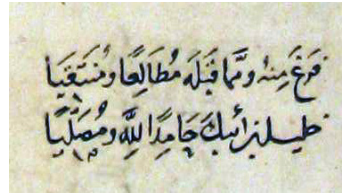 فرغ منه ومما قبله مطالعا ومنتقيا
خليل بن أيبك حامدا لله ومصليا